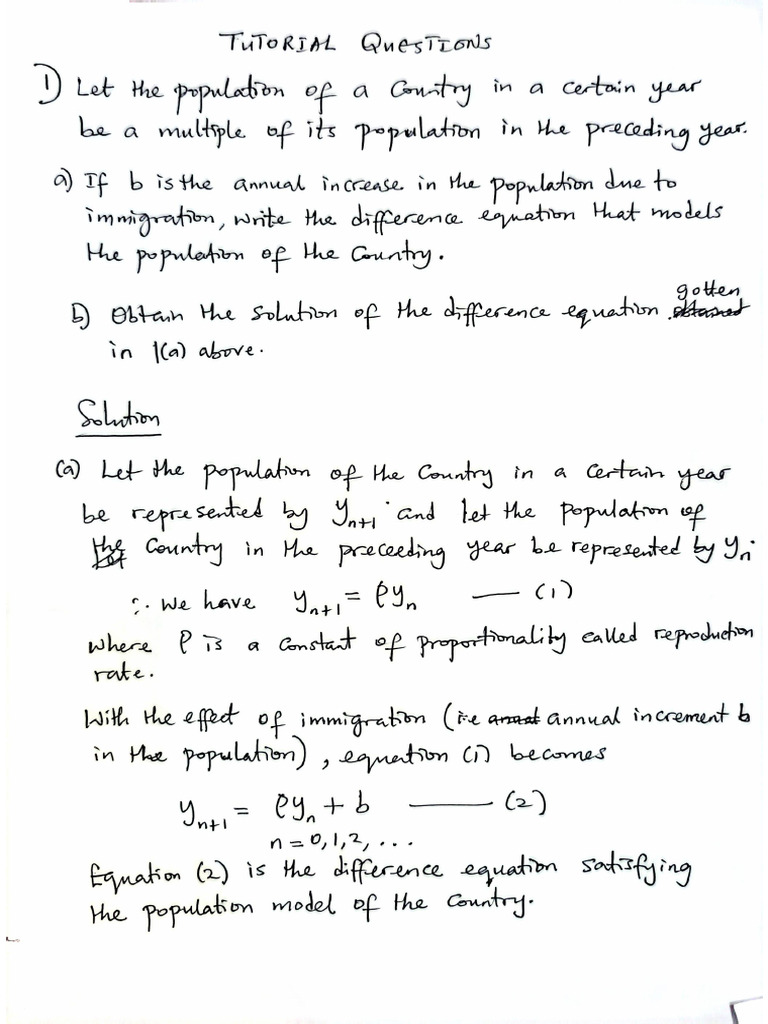 TUTORIAL QUESTIONS
1) Let the population of a Country in a certain year
be a multiple of its population in the preceding year.
a) If b is the annual increase in the population due to
immigration, write the difference equation that models
the population of the Country.
b) Obtain the solution of the difference equation gotten
in 1(a) above.
Solution
(a) Let the population of the Country in a certain year
be represented by yₙ₊₁ and let the population of
the Country in the preceeding year be represented by yₙ.
∴ we have yₙ₊₁ = ρyₙ — (1)
where ρ is a constant of proportionality called reproduction
rate.
With the effect of immigration (i.e annual increment b
in the population), equation (1) becomes
yₙ₊₁ = ρyₙ + b — (2)
n = 0, 1, 2, ...
Equation (2) is the difference equation satisfying
the population model of the Country.